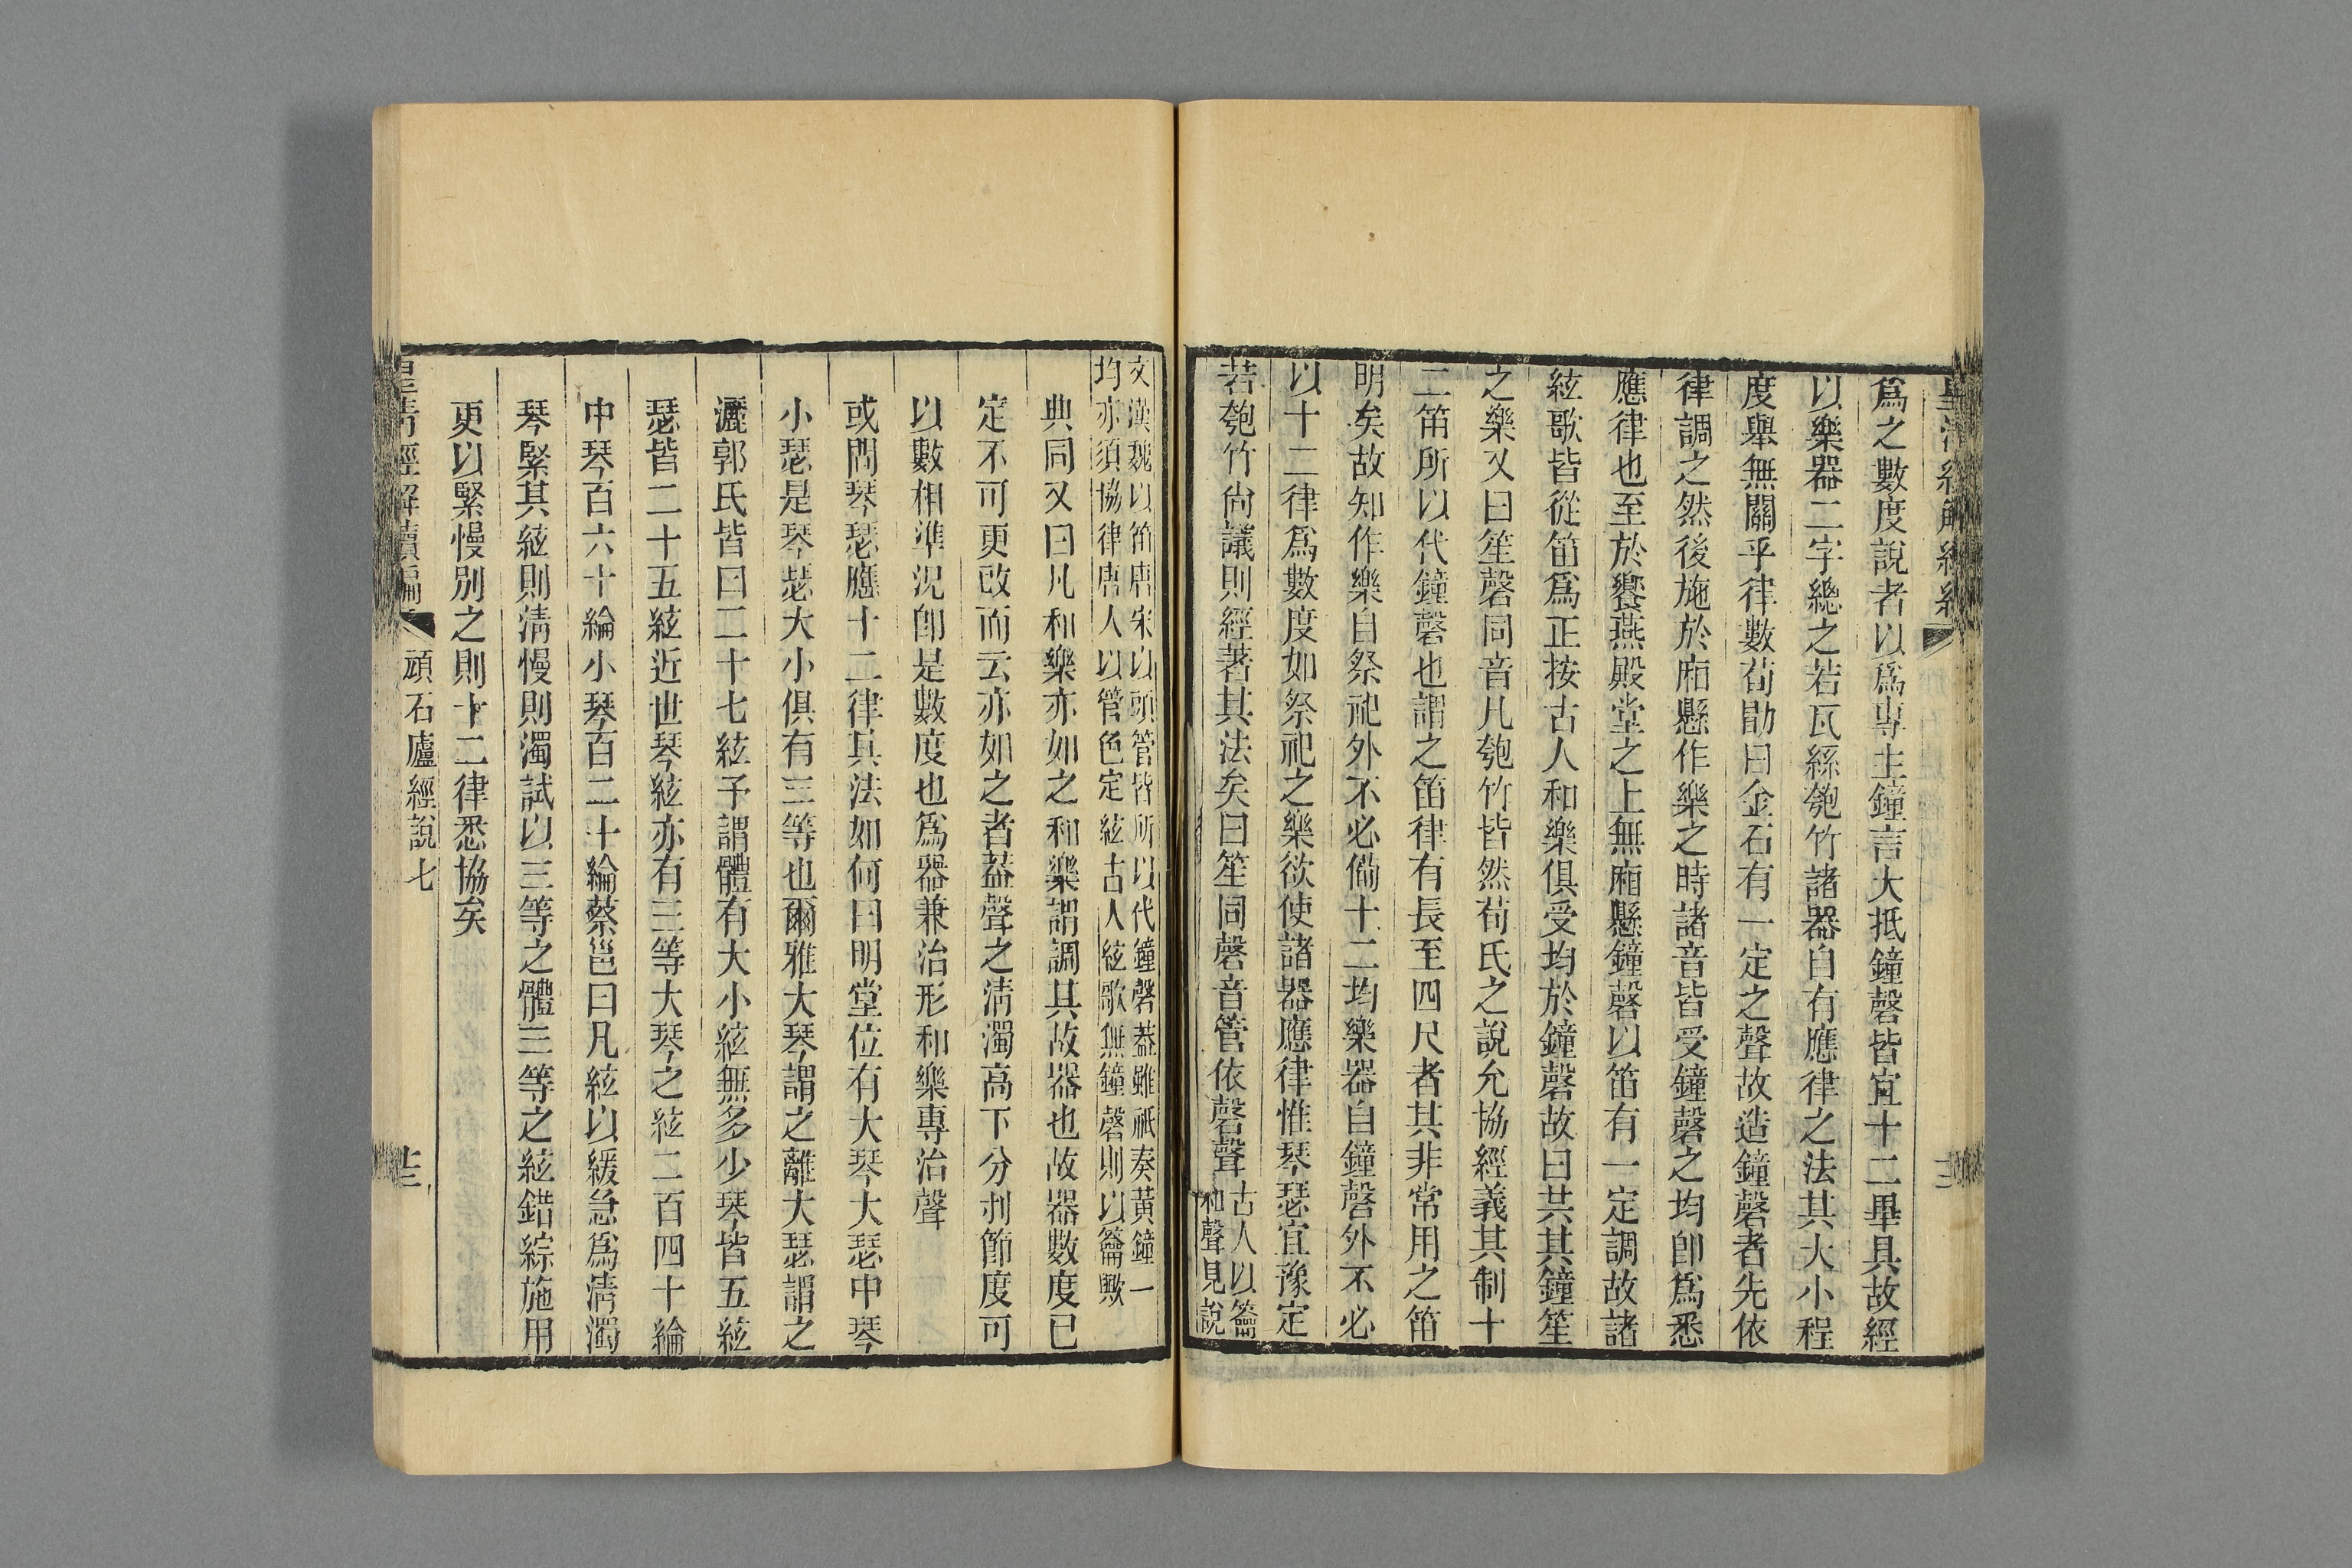 爲之數度說者以爲専主鐘言大抵鐘磬皆宜十二畢具故經
以樂器二字總之若瓦絲匏竹諸器自有應律之法其大小程
度舉無關乎律數荀勖曰金石有一定之聲故造鐘磬者先依
律調之然後施於廂懸作樂之時諸音皆受鐘磬之均卽爲悉
應律也至於饗燕殿堂之上無廂懸鐘磬以笛有一定調故諸
絃歌皆從笛爲正按古人和樂俱受均於鐘磬故曰共其鐘笙
之樂又曰笙磬同音凡匏竹皆然荀氏之說允協經義其制十
二笛所以代鐘磬也謂之笛律有長至四尺者其非常用之笛
明矣故知作樂自祭祀外不必備十二均樂器自鐘磬外不必
以十二律爲數度如祭祀之樂欲使諸器應律惟琴瑟宜豫定
若匏竹尙議則經著其法矣曰笙同磬音管依磬聲
古人以籥
和聲見說
文漢魏以笛唐宋以頭管皆所以代鐘磬葢雖祇奏黃鐘一
均亦須協律唐人以管色定絃古人絃歌無鐘磬則以籥歟
典同又曰凡和樂亦如之和樂謂調其故器也故器數度已
定不可更改而云亦如之者葢聲之淸濁高下分刌節度可
以數相準況卽是數度也爲器兼治形和樂專治聲
或問琴瑟應十二律其法如何曰明堂位有大琴大瑟中琴
小瑟是琴瑟大小俱有三等也爾雅大琴謂之離大瑟謂之
灑郭氏皆曰二十七絃予謂體有大小絃無多少琴皆五絃
瑟皆二十五絃近世琴絃亦有三等大琴之絃二百四十綸
中琴百六十綸小琴百二十綸蔡邕曰凡絃以緩急爲淸濁
琴緊其絃則淸慢則濁試以三等之體三等之絃錯綜施用
更以緊慢別之則十二律悉協矣
皇淸經解續編
頑石廬經說七